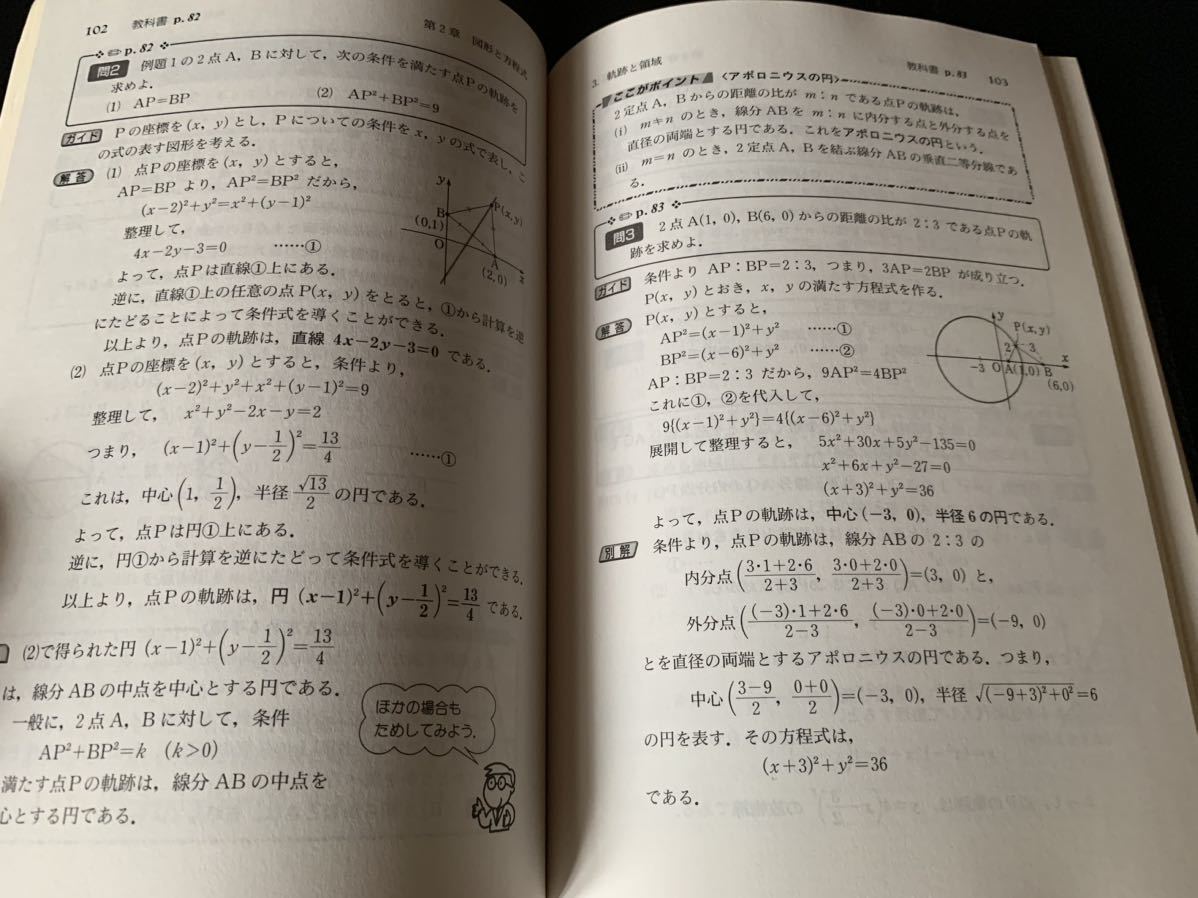 102 教科書 p.82
第2章 図形と方程式
p.82
問2 例題1の2点A,Bに対して,次の条件を満たす点Pの軌跡を
求めよ.
(1) AP=BP (2) AP²+BP²=9
ガイド Pの座標を(x, y)とし,Pについての条件をx, yの式で表し,こ
の式の表す図形を考える.
解答 (1) 点Pの座標を(x, y)とすると,
AP=BP より,AP²=BP² だから,
(x-2)²+y²=x²+(y-1)²
整理して,
4x-2y-3=0 ……①
よって,点Pは直線①上にある.
逆に,直線①上の任意の点P(x, y)をとると,①から計算を逆
にたどることによって条件式を導くことができる.
以上より,点Pの軌跡は,直線 4x-2y-3=0 である.
y
P(x, y)
B
(0,1)
O
A
(2,0)
x
(2) 点Pの座標を(x, y)とすると,条件より,
(x-2)²+y²+x²+(y-1)²=9
整理して, x²+y²-2x-y=2
つまり, (x-1)²+(y-1/2)²=13/4 ……①
これは,中心(1, 1/2),半径√13/2の円である.
よって,点Pは円①上にある.
逆に,円①から計算を逆にたどって条件式を導くことができる.
以上より,点Pの軌跡は,円 (x-1)²+(y-1/2)²=13/4 である.
(2)で得られた円 (x-1)²+(y-1/2)²=13/4
は,線分ABの中点を中心とする円である.
一般に,2点A,Bに対して,条件
AP²+BP²=k (k>0)
満たす点Pの軌跡は,線分ABの中点を
心とする円である.
ほかの場合も
ためしてみよう.
3. 軌跡と領域
教科書 p.83 103
ここがポイント 〈アポロニウスの円〉
2定点A,Bからの距離の比が m:n である点Pの軌跡は,
(i) m≠n のとき,線分ABを m:n に内分する点と外分する点を
直径の両端とする円である.これをアポロニウスの円という.
(ii) m=n のとき,2定点A,Bを結ぶ線分ABの垂直二等分線であ
る.
p.83
問3 2点A(1, 0),B(6, 0)からの距離の比が 2:3 である点Pの軌
跡を求めよ.
ガイド 条件より AP:BP=2:3,つまり,3AP=2BP が成り立つ.
P(x, y)とおき,x, yの満たす方程式を作る.
解答 P(x, y)とすると,
AP²=(x-1)²+y² ……①
BP²=(x-6)²+y² ……②
AP:BP=2:3 だから,9AP²=4BP²
これに①,②を代入して,
9{(x-1)²+y²}=4{(x-6)²+y²}
y
P(x, y)
2
3
x
-3
O
A(1,0)
B
(6,0)
展開して整理すると, 5x²+30x+5y²-135=0
x²+6x+y²-27=0
(x+3)²+y²=36
よって,点Pの軌跡は,中心(-3, 0),半径6の円である.
別解 条件より,点Pの軌跡は,線分ABの 2:3 の
内分点((3・1+2・6)/(2+3), (3・0+2・0)/(2+3))=(3, 0) と,
外分点(((-3)・1+2・6)/(2-3), ((-3)・0+2・0)/(2-3))=(-9, 0)
とを直径の両端とするアポロニウスの円である.つまり,
中心((3-9)/2, (0+0)/2)=(-3, 0),半径 √((-9+3)²+0²)=6
の円を表す.その方程式は,
(x+3)²+y²=36
である.